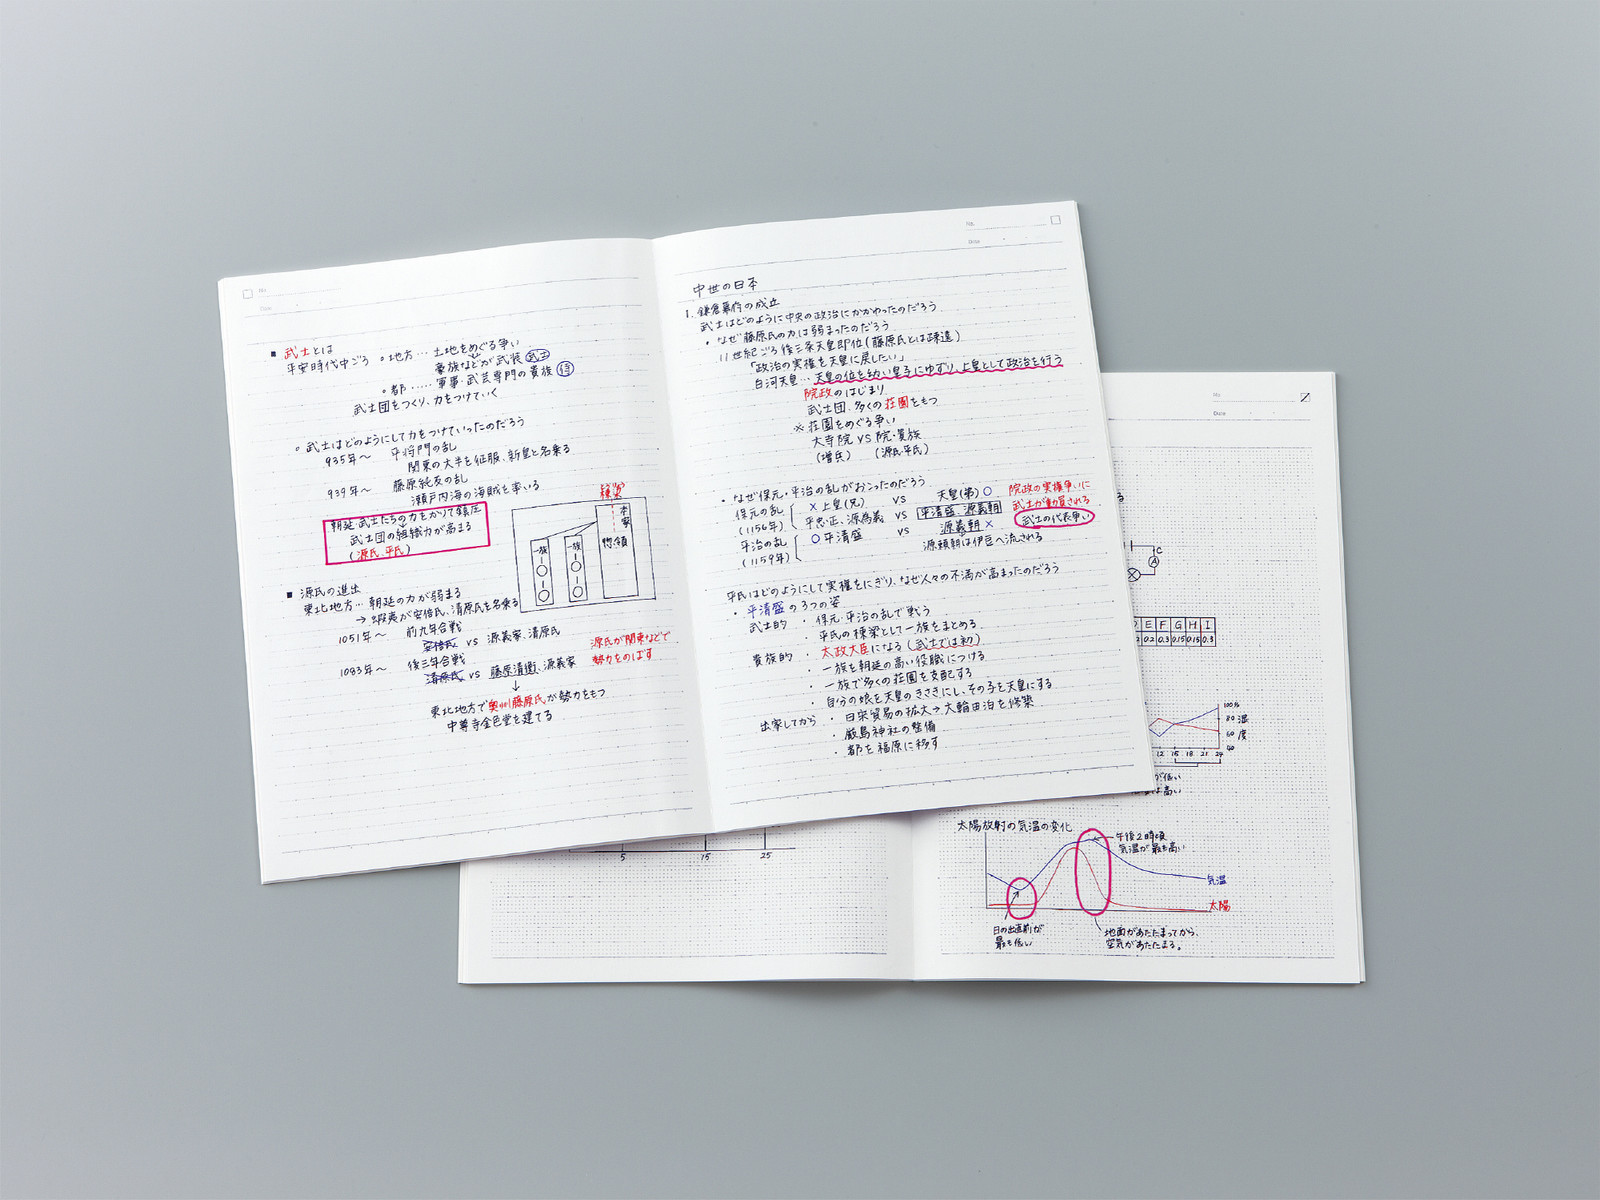 No.
Date
■ 武士とは
平安時代中ごろ ○地方… 土地をめぐる争い
豪族などが武装 武士
○都…… 軍事・武芸専門の貴族 侍
武士団をつくり、力をつけていく
○ 武士はどのようにして力をつけていったのだろう
935年〜 平将門の乱
関東の大半を征服、新皇と名乗る
939年〜 藤原純友の乱
瀬戸内海の海賊を率いる
朝廷 武士たちの力をかりて鎮圧
武士団の組織力が高まる
(源氏、平氏)
棟梁
本家
惣領
一族
一族
■ 源氏の進出
東北地方… 朝廷の力が弱まる
→ 蝦夷が安倍氏、清原氏を名乗る
1051年〜 前九年合戦
安倍氏 vs 源義家、清原氏
1083年〜 後三年合戦
清原氏 vs 藤原清衡、源義家
源氏が関東などで
勢力をのばす
↓
東北地方で奥州藤原氏が勢力をもつ
中尊寺金色堂を建てる
No.
Date
中世の日本
1. 鎌倉幕府の成立
武士はどのように中央の政治にかかわったのだろう
・なぜ藤原氏の力は弱まったのだろう
11世紀ごろ後三条天皇即位(藤原氏とは疎遠)
「政治の実権を天皇に戻したい」
白河天皇… 天皇の位を幼い皇子にゆずり、上皇として政治を行う
院政のはじまり
武士団、多くの荘園をもつ
※荘園をめぐる争い
大寺院 VS 院・貴族
(増兵) (源氏平氏)
・なぜ保元・平治の乱がおこったのだろう
保元の乱 × 上皇(兄) vs 天皇(弟) ○
(1156年) 平忠正、源為義 vs 平清盛、源義朝
平治の乱 ○ 平清盛 vs 源義朝 ×
(1159年) 源頼朝は伊豆へ流される
院政の実権争いに
武士が動員される
武士の代表争い
平氏はどのようにして実権をにぎり、なぜ人々の不満が高まったのだろう
・平清盛の3つの姿
武士的 ・保元・平治の乱で戦う
・平氏の棟梁として一族をまとめる
貴族的 ・太政大臣になる(武士では初)
・一族を朝廷の高い役職につける
・一族で多くの荘園を支配する
・自分の娘を天皇のきさきにし、その子を天皇にする
出家してから ・日宋貿易の拡大→大輪田泊を修築
・厳島神社の整備
・都を福原に移す
No.
Date
C
A
E F G H I
0.2 0.3 0.15 0.15 0.3
100%
80
60
40
湿度
12 15 18 21 24
が低い
は高い
5 15 25
太陽放射の気温の変化
午後2時頃
気温が最も高い
気温
太陽
日の出直前が
最も低い
地面があたたまってから、
空気があたたまる。